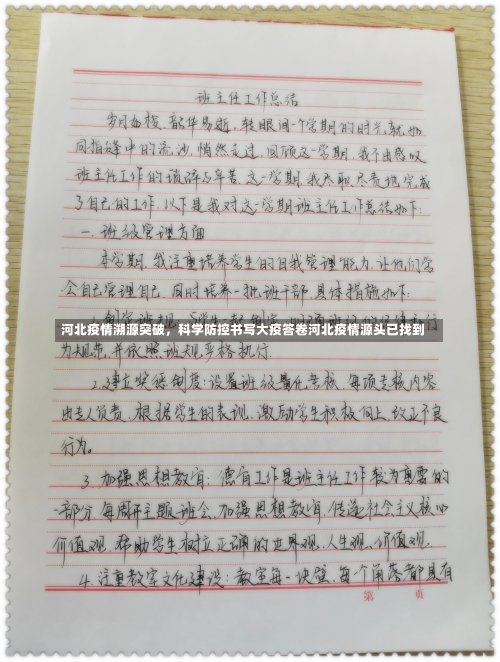 班主任工作总结
岁月如梭,韶华易逝,转眼间一个学期的时光,就如
同指缝中的流沙,悄然走过,回顾这一学期,我不由感叹
班主任工作的琐碎与辛苦.这一学期,我尽职尽责地完成
了自己的工作.以下是我对这一学期班主任工作总结如下:
一.班级管理方面
本学期,我注重培养学生的自我管理能力,让他们学
会自己管理自己.同时培养一批班干部.具体措施如下:
河北疫情溯源突破，科学防控书写大疫答卷河北疫情源头已找到
为规范,并依照班规严格执行.
2.建立奖惩制度:设置班级量化考核,每项考核内容
由专人负责.根据学生的表现,激励学生积极向上,改正不良
行为。
3.加强思想教育:德育工作是班主任工作较为重要的
一部分,每周开主题班会,加强思想教育,传递社会主义核心
价值观,帮助学生树立正确的世界观,人生观,价值观.
4.注重教室文化建设:教室每一块壁,每个角落都具有
第 页